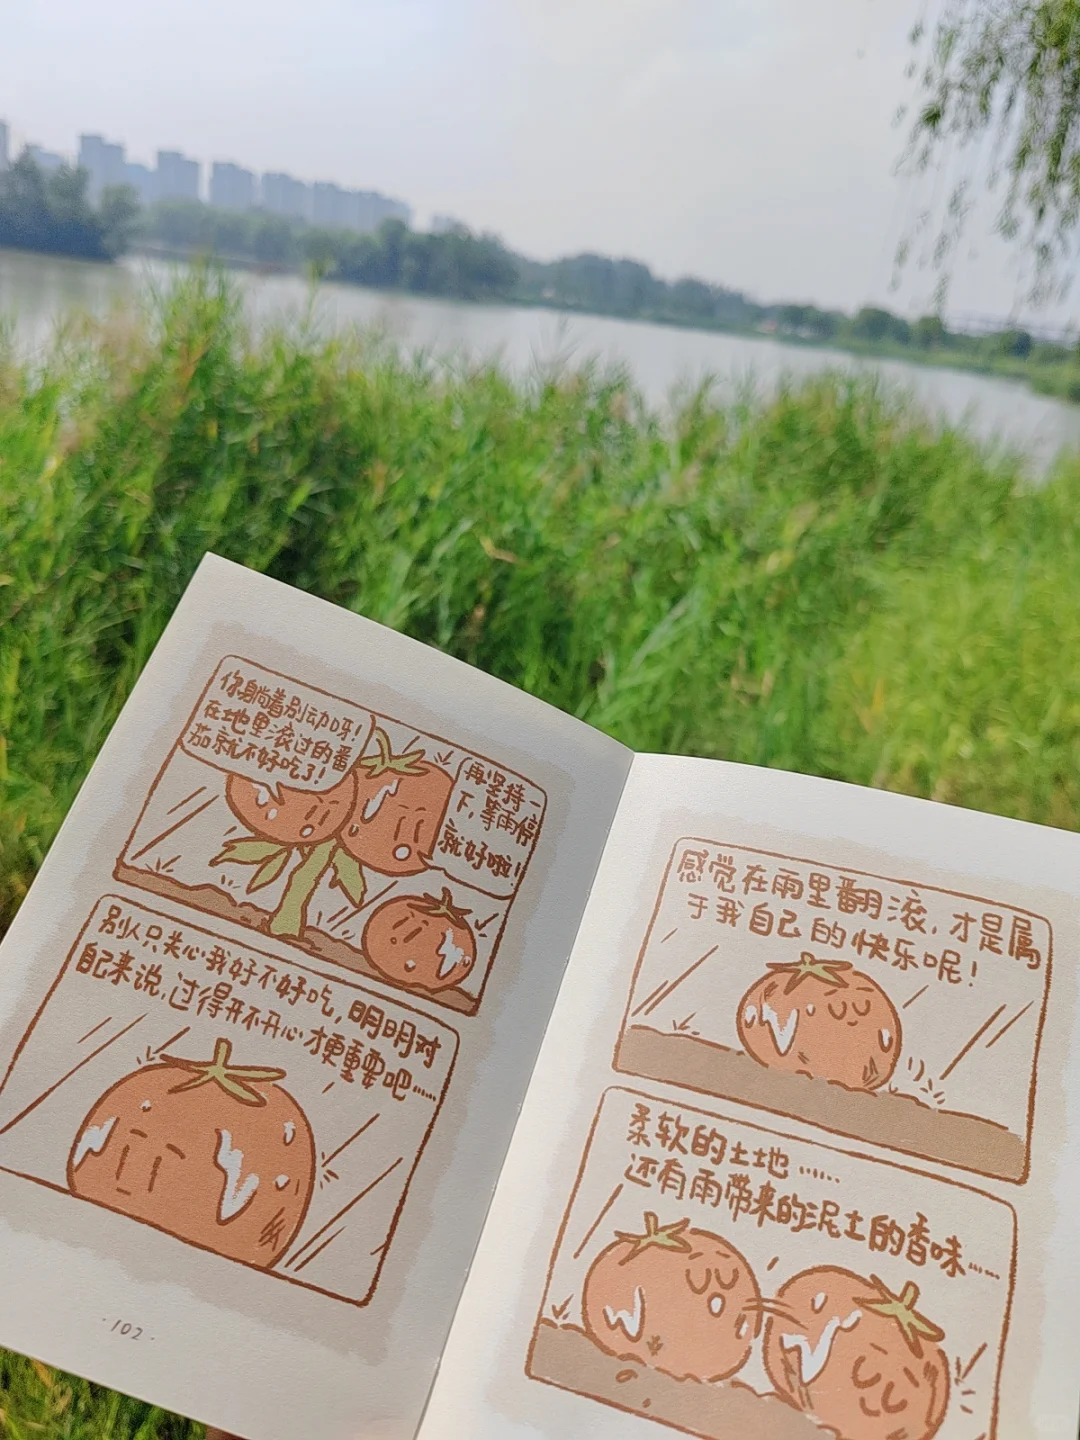 你躺着别动呀！
在地里滚过的番
茄就不好吃了！
再坚持一
下，等雨停
就好啦！
别人只关心我好不好吃，明明对
自己来说，过得开不开心才更重要吧……
·102·
感觉在雨里翻滚，才是属
于我自己的快乐呢！
柔软的土地……
还有雨带来的泥土的香味……